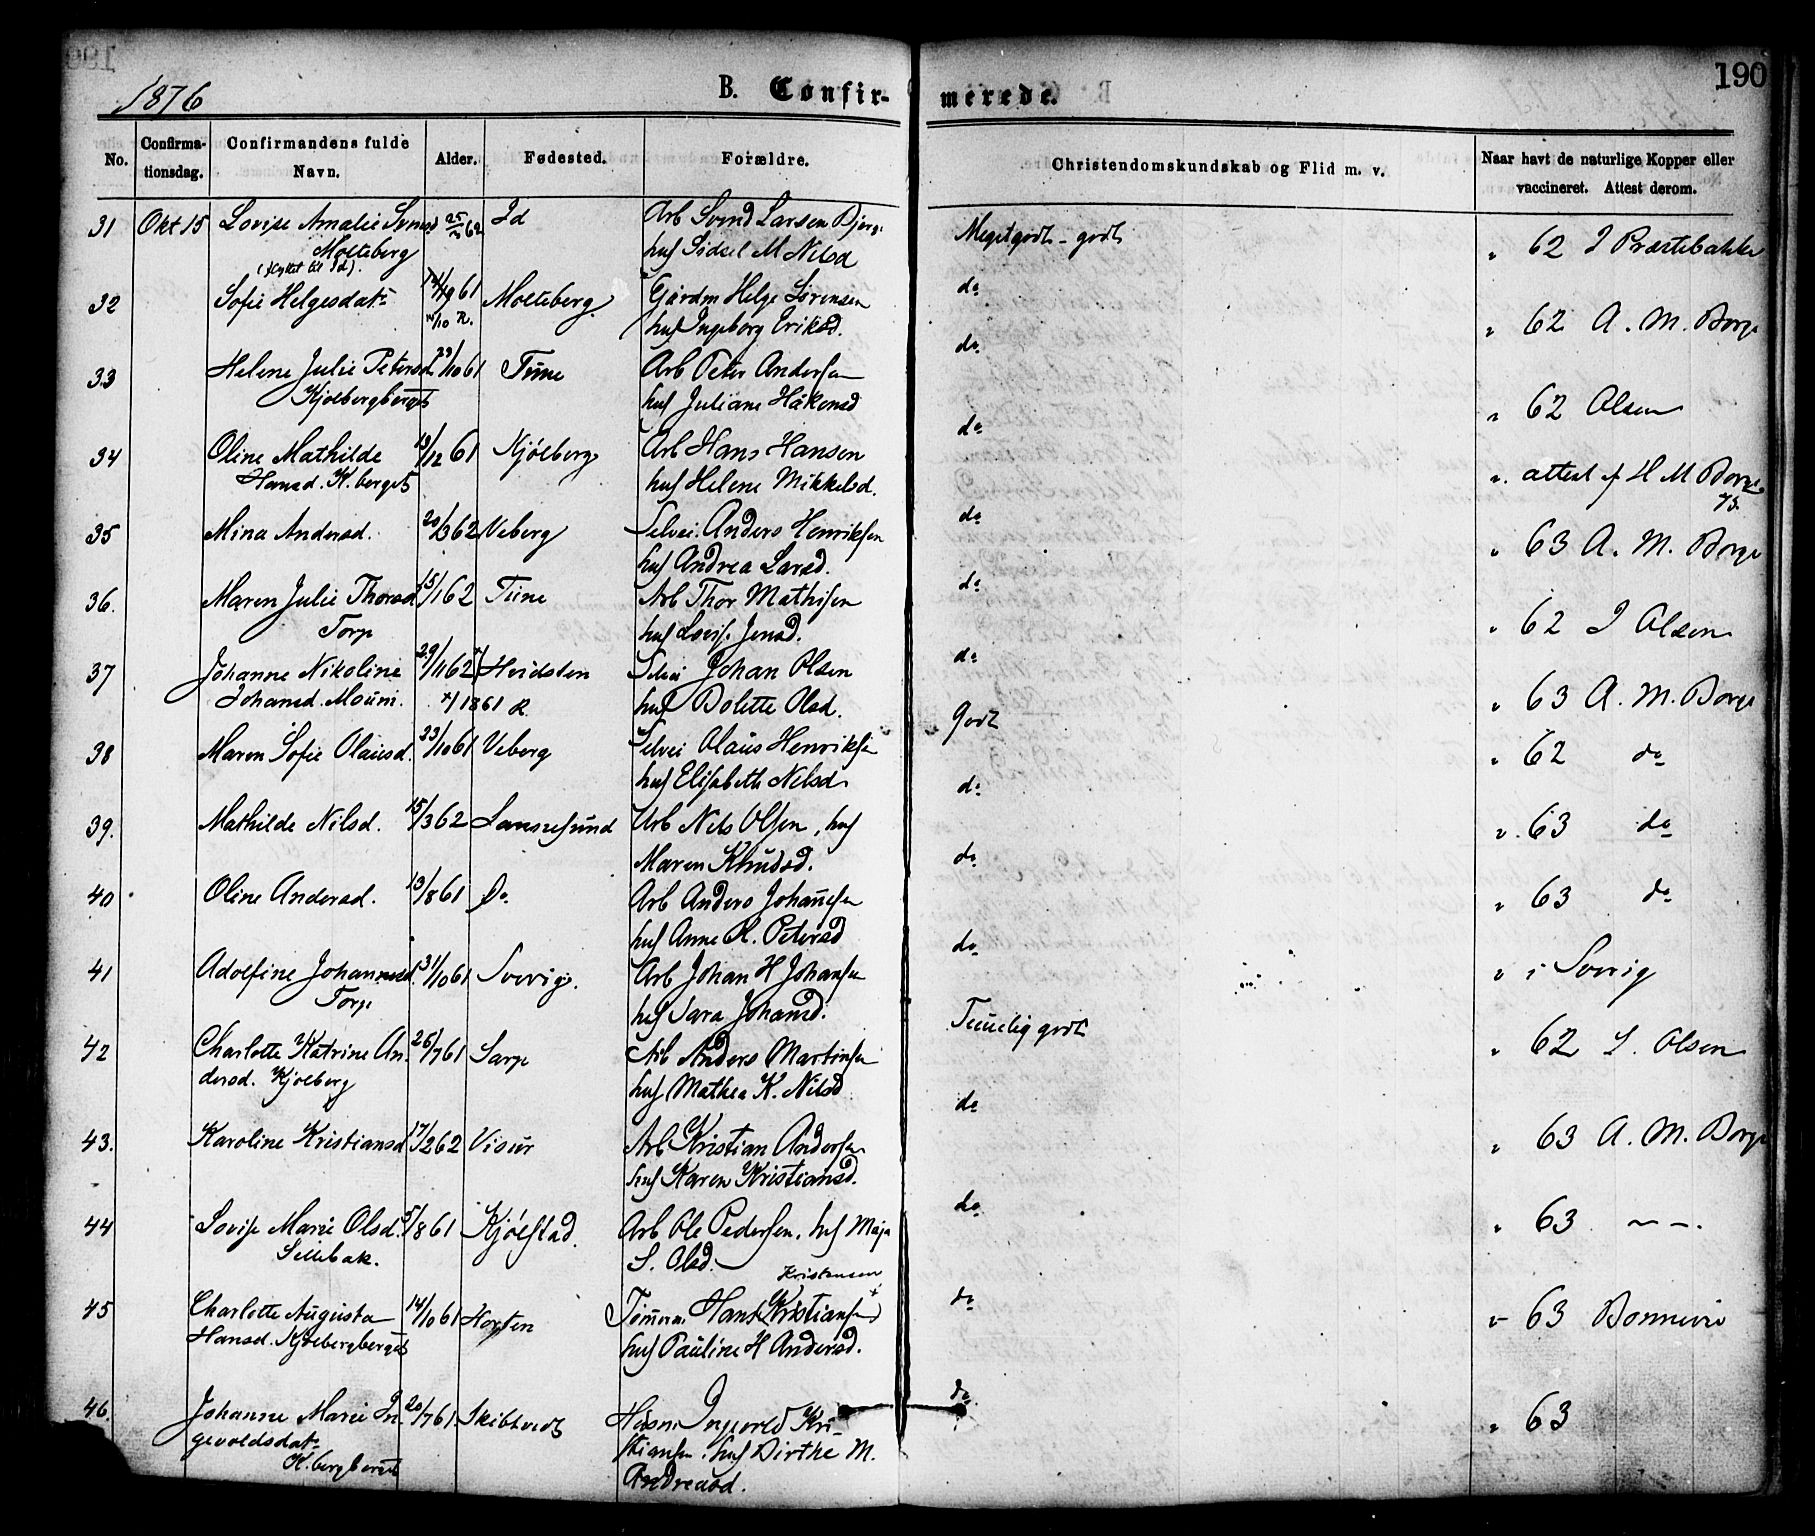 190
1876
B. Confir- merede.
No. Confirma- tionsdag. Confirmandens fulde Navn. Alder. Fødested. Forældre. Christendomskundskab og Flid m. v. Naar havt de naturlige Kopper eller vaccineret. Attest derom.
31 Okt 15 Lovise Amalie 62 Id Arb Svend Larsen Meget godt - godt " 62 I Præstebakke
Molteberg huf Sidsel M Nilsd
(flyttet til Id).
32 Sofie Helgesdatr 61 Molteberg Gårdm Helge Sørensen do " 62 A. M. Borge
14/10 R. huf Ingeborg Eriksd.
33 Helene Julie Petersd 29/10 61 Tune Arb Peter Andersen do " 62 Olsen
Kjølbergberget huf Juliane Håkensd
34 Oline Mathilde 13/12 61 Kjølberg Arb Hans Hansen do " attest f H M Borge
Hansd. K.berget huf Helene Mikkelsd. 73.
35 Mina Andersd. 20/3 62 Veberg Selvei. Anders Henriksen do " 63 A. M. Borge
huf Andrea Larsd.
36. Maren Julie Thorsd 15/1 62 Tune Arb Thor Mathisen do " 62 J Olsen
Torp huf Lovise Jensd.
37 Johanne Nikoline 29/11 62 Hvidsten Selvei Johan Olsen do " 63 A. M. Borge
Johansd. Moum. 1861 R. huf Bolette Olsd.
38 Maren Sofie Olausd. 23/10 61 Veberg Selvei Olaus Henriksen Godt " 62 do
huf Elisabeth Nelsd
39. Mathilde Nilsd. 15/3 62 Lannesund Arb Nils Olsen, huf do " 63 do
Maren Knudsd.
40 Oline Andersd. 13/8 61 Do Arb Anders Johansen do " 63 do
huf Anne K. Petersd
41 Adolfine Johannesd. 31/10 61 Sverig. Arb Johan H Johansen do " i Sverig
Torp huf Sara Johansd.
42 Charlotte Katrine An- 26/7 61 Sarp Arb Anders Martinsen Temmelig godt " 62 J. Olsen
dersd. Kjølberg huf Mathea K. Nilsd
43. Karoline Kristiansd 17/2 62 Visur Arb Kristian Andersen do " 63 A. M. Borge
huf Karen Kristiansd.
44 Lovise Marie Olsd. 5/8 61 Kjølstad Arb Ole Pedersen, huf Maja do " 63 – –
Sellebak. S. Olsd.
Kristensen
45 Charlotte Augusta 14/10 61 Horten Tømmerm Hans Kristiansen do " 63 Bonnevie
Hansd. Kjølbergberget huf Pauline H Andersd.
46. Johanne Marie In- 20/7 61 Skibtvedt Husm Ingevold Kri- do " 63
gevoldsdatr stiansen, huf Birthe M.
K.bergberget Andreasd.